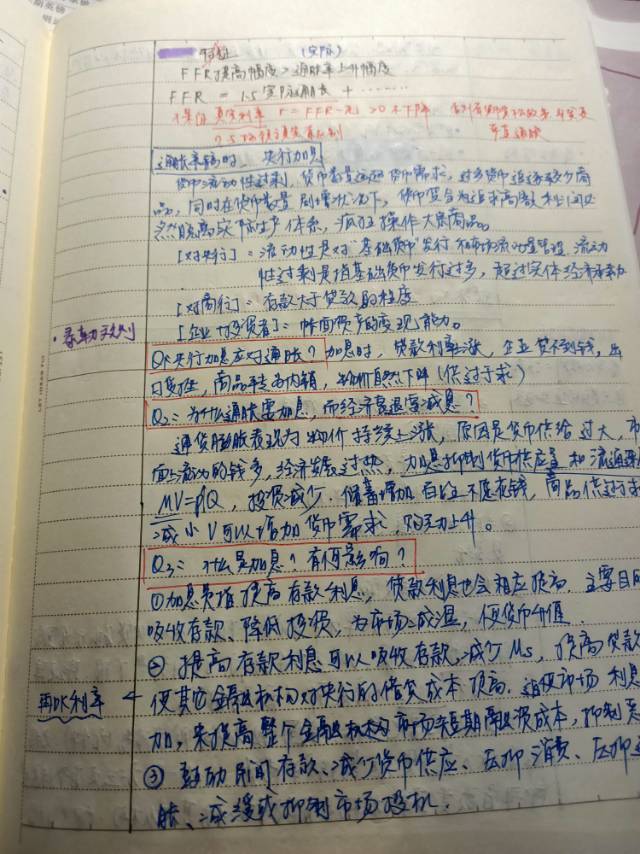 (实际)
FFR提高幅度 > 通胀率上升幅度
FFR = 1.5实际通胀 + ········
保证真实利率 r = FFR - π > 0 不下降
通胀率高时，央行加息
货币流动性过剩，货币数量远超货币需求，过多货币追逐较少商
品，同时在货币数量剧增状况下，货币复合为追求高额利润必
然脱离实际生产体系，疯狂操作大宗商品。
[对央行]：流动性是对“基础货币”发行和市场流动量管理，流动
性过剩是指基础货币发行过多，超过实体经济承载
[对商行]：存款大于贷款的程度
[企业、投资者]：帐面资产的变现能力。
·泰勒规则
Q1:央行加息应对通胀？加息时，贷款利率涨，企业贷不到钱，出
口受阻，商品转为内销，物价自然下降(供过于求)
Q2:为什么通胀需加息，而经济衰退要减息？
通货膨胀表现为物价持续上涨，原因是货币供给过大，市
面上流动的钱多，经济发展过热，加息抑制货币供应量和流通速度
MV=PQ，投资减少，储蓄增加，百姓不愿花钱，商品供过于求
减小V可以增加货币需求，购买力上升。
Q3:什么是加息？有何影响？
①加息是指提高存款利息，贷款利息也会相应提高，主要目的
吸收存款、降低投资，为市场减温，使货币升值.
② 提高存款利息可以吸收存款，减少Ms，提高贷款
再贴利率
使其它金融机构对央行的借贷成本提高，迫使市场利息
加，来提高整个金融机构市场短期融资成本，抑制
③ 鼓励民间存款、减少货币供应、压抑消费、压抑通
胀、减缓或抑制市场投机.